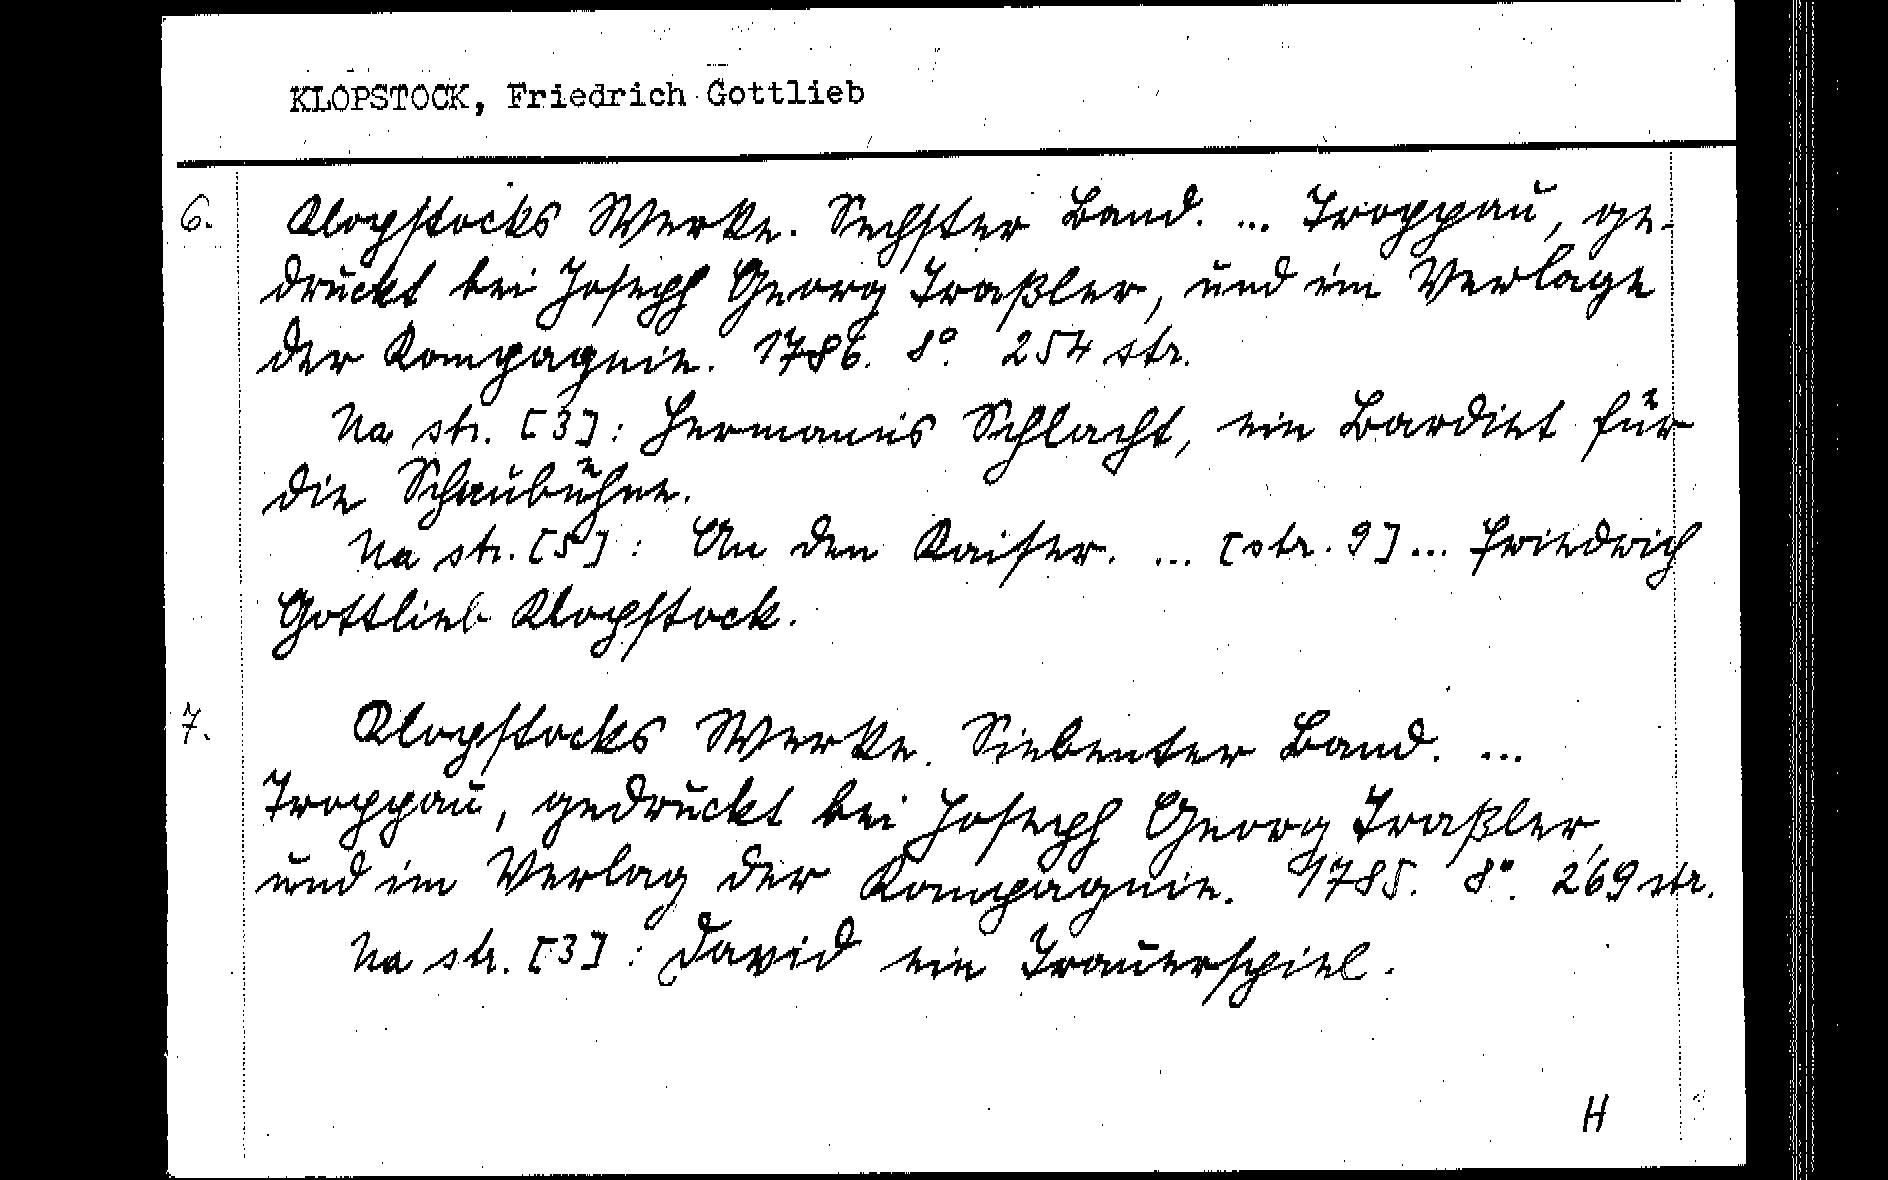 KLOPSTOCK, Friedrich Gottlieb
6. Klopstocks Werke. Sechster Band. ... Troppau, ge-
druckt bei Joseph Georg Traßler, und im Verlage
der Kompagnie. 1786. 8°. 254 str.
Na str. [3]: Hermanns Schlacht, ein Bardiet für
die Schaubühne.
Na str. [5]: An den Kaiser. ... [str. 9] ... Friedrich
Gottlieb Klopstock.
7. Klopstocks Werke. Siebenter Band. ...
Troppau, gedruckt bei Joseph Georg Traßler,
und im Verlag der Kompagnie. 1785. 8°. 269 str.
Na str. [3]: David ein Trauerspiel.
H